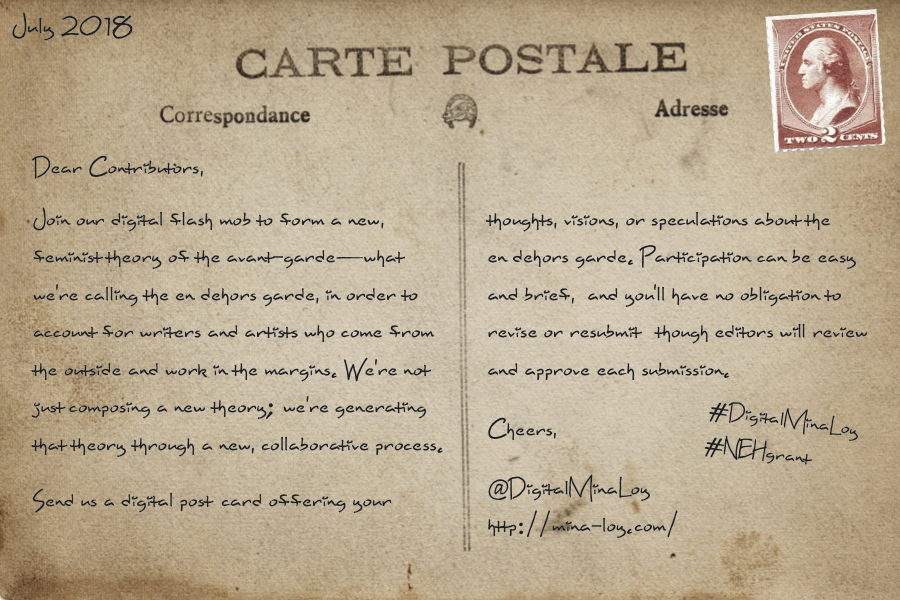 July 2018
CARTE POSTALE
Correspondance
Adresse
UNITED STATES POSTAGE
TWO 2 CENTS
Dear Contributors,
Join our digital flash mob to form a new,
feminist theory of the avant-garde—what
we're calling the en dehors garde, in order to
account for writers and artists who come from
the outside and work in the margins. We're not
just composing a new theory; we're generating
that theory through a new, collaborative process.
Send us a digital post card offering your
thoughts, visions, or speculations about the
en dehors garde. Participation can be easy
and brief, and you'll have no obligation to
revise or resubmit though editors will review
and approve each submission.
Cheers,
#DigitalMinaLoy
#NEHgrant
@DigitalMinaLoy
http://mina-loy.com/